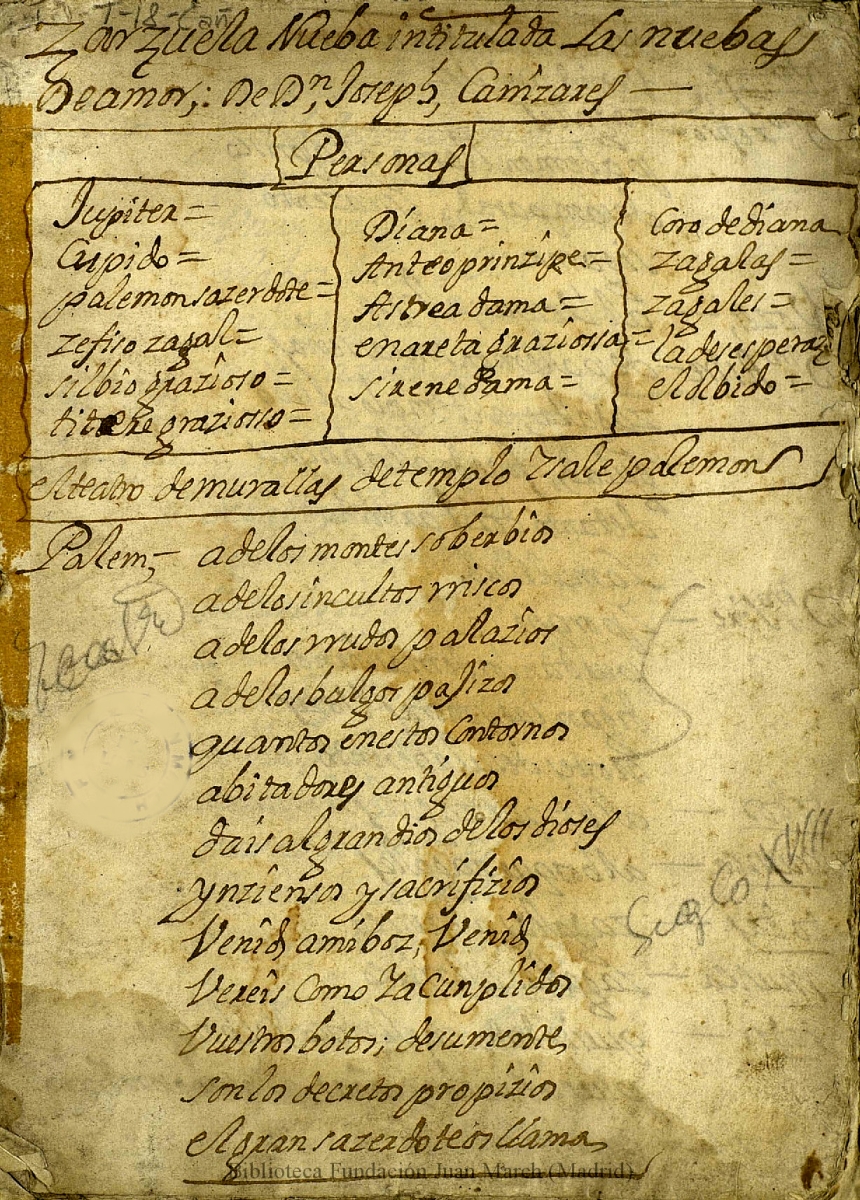 T-18-Cañ
Zarzuela Nueba intitulada Las nuebas
De amor,: De Dn, Joseph, Cañizares —
Personas
Jupiter =
Cupido =
palemon sazerdote =
zefiso zagal =
silbio grazioso =
titere grazioso =
Diana =
Anteo prinzipe =
Astrea dama =
enareta graziossa =
sirene dama =
Coro de diana
zagalas =
zagales =
la desespera
el olbido =
el teatro de murallas de templo Y sale palemon
Palem,- a de los montes soberbios
a de los incultos rriscos
a de los rrudos palazios
a de los bulgos pajizos
quantos en estos Contornos
abitadores antiguos
dais al gran dios de los dioses
ynziensos y sacrifizios
Venid, a mi boz, Venid,
Vereis Como Ya Cunplidos
Vuestros botos; de su mente,
son los decretos propizios
el gran sazerdote os llama,
Siglo XVIII
Biblioteca Fundación Juan March (Madrid)